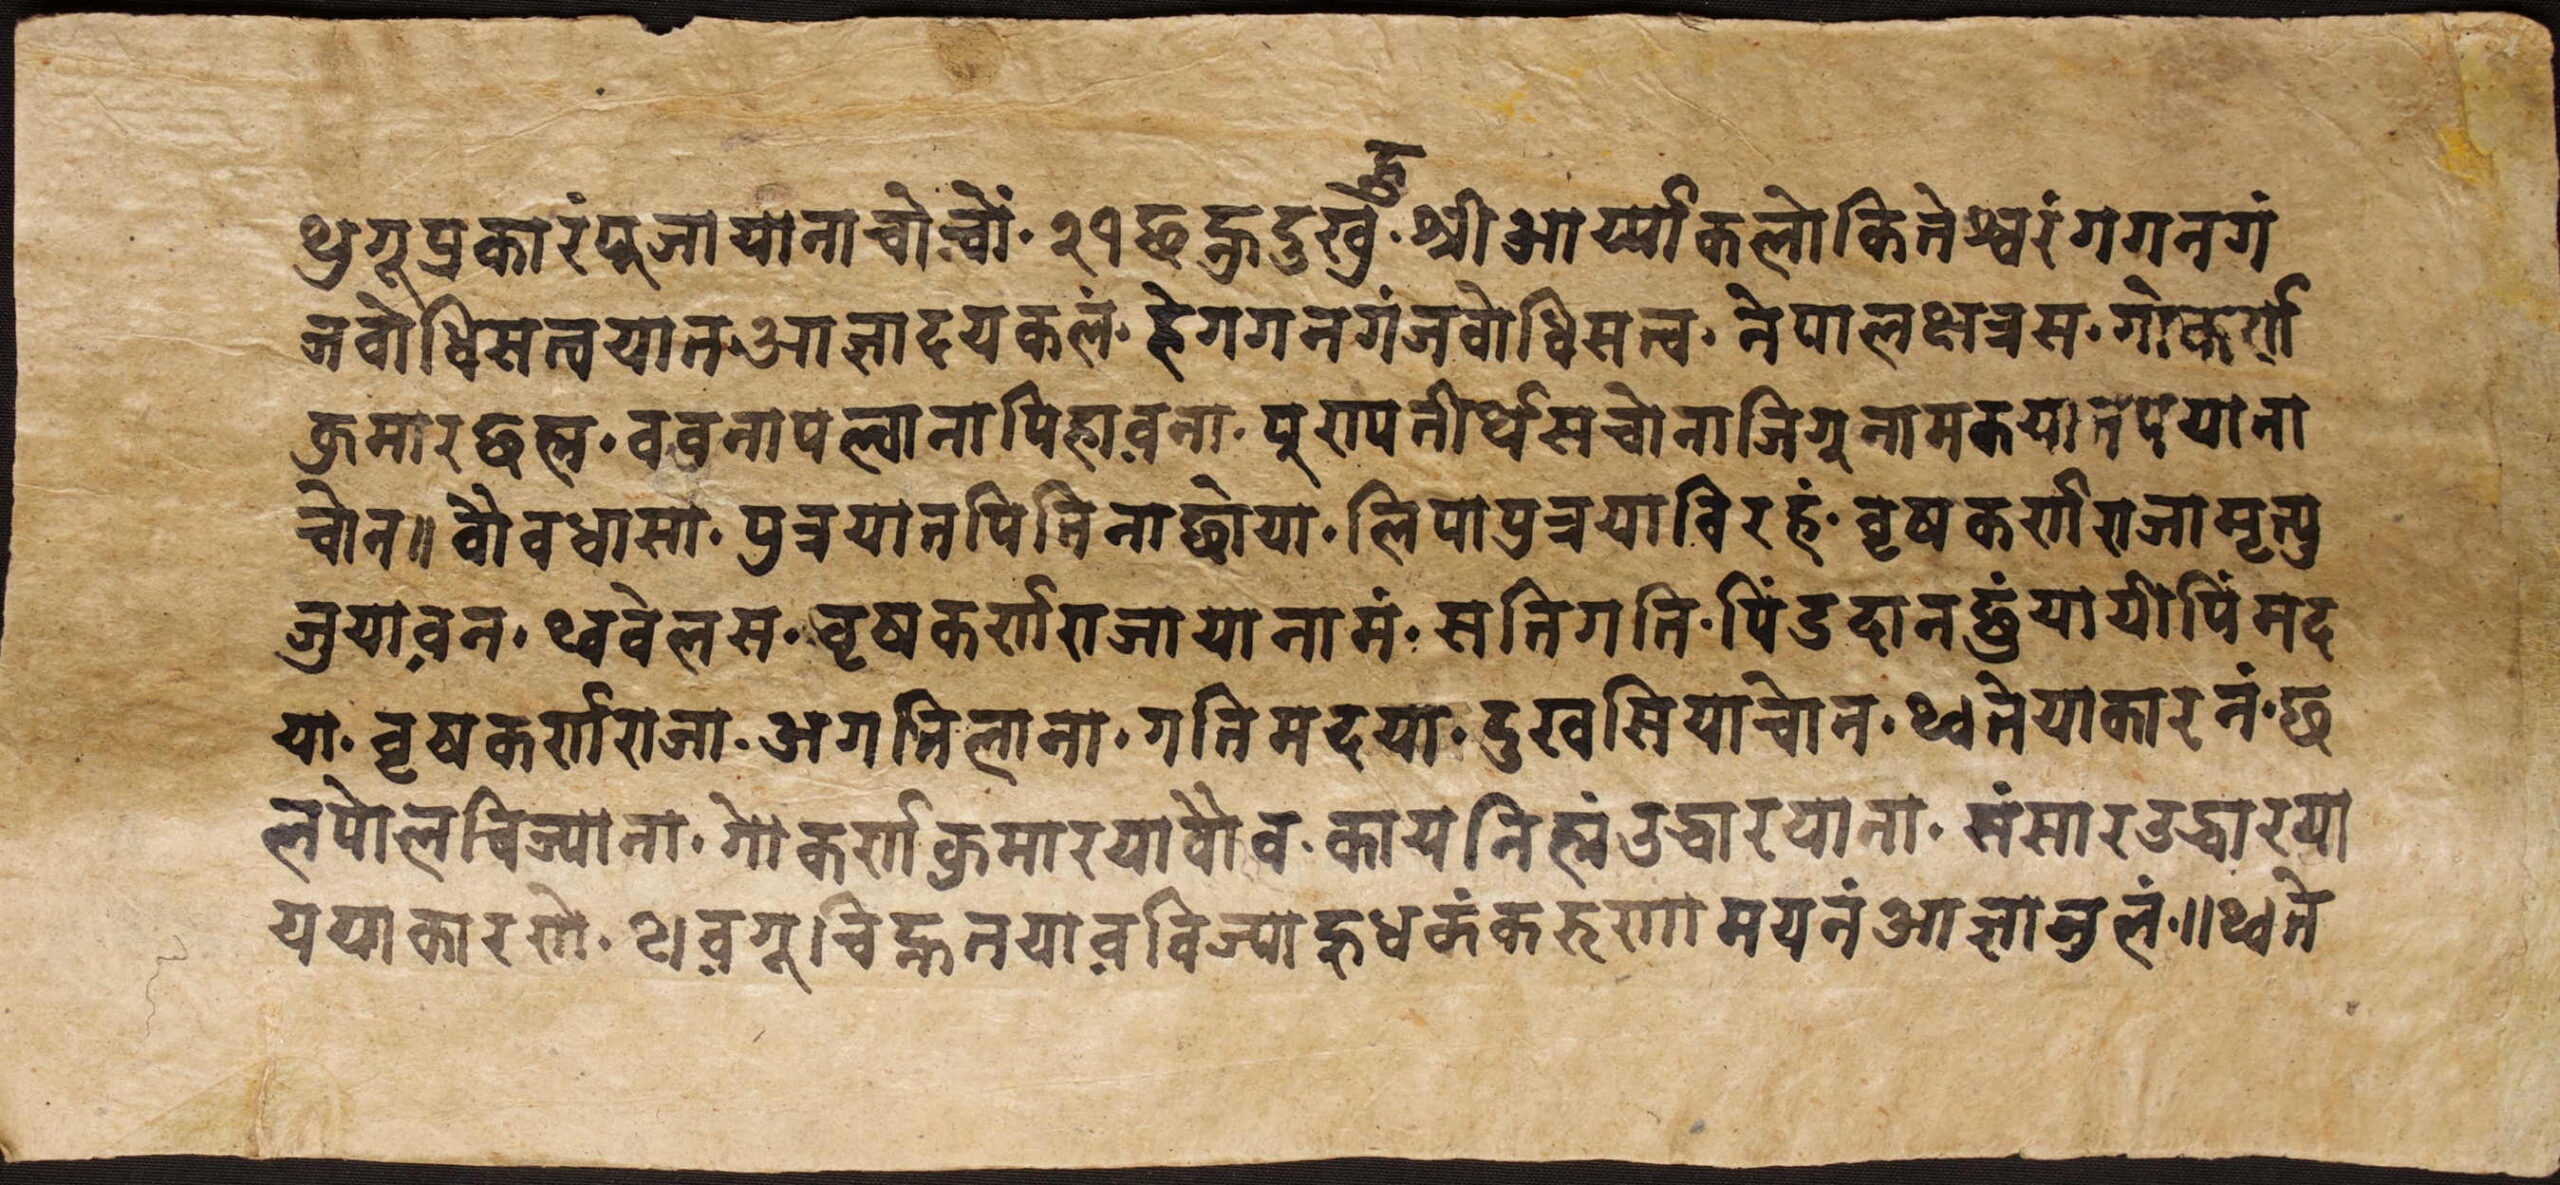 हु
थुगूप्रकारंपूजायानाचोंचों· २१छह्नुदुखुं· श्रीआर्य्याकलोकितेश्वरंगगनगं
जवोधिसत्वयातआज्ञादयकलं· हेगगनगंजवोधिसत्व· नेपालक्षत्रस· गोकर्ण
कुमारछह्म· ववुनापल्वानापिहावना· पुरापतीर्थसचोनाजिगूनामकयातपयाना
चोन॥ वौवधासा· पुत्रयातपितिनाछोया· लिपापुत्रयाविरहं· वृषकर्णराजामृत्यु
जुयावन· थ्ववेलस· वृषकर्णराजायानामं· सतिगति· पिंडदानछुंयायीपिंमद
या· वृषकर्णराजा· अगतिलाना· गतिमदया· दुखसियाचोन· थ्वतेयाकारनं· छ
लपोलविज्याना· गोकर्णकुमारयावौव· कायनिह्मंउद्धारयाना· संसारउद्धारया
ययाकारणे· थवगूचिह्नतयावविज्याहुधकंकरूणामयनंआज्ञाजुलं·॥ थ्वते